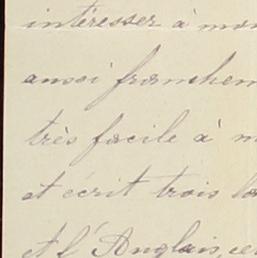 intéresser à mon
aussi franchem
très facile à m
et écrit trois la
et l'Anglais, ce